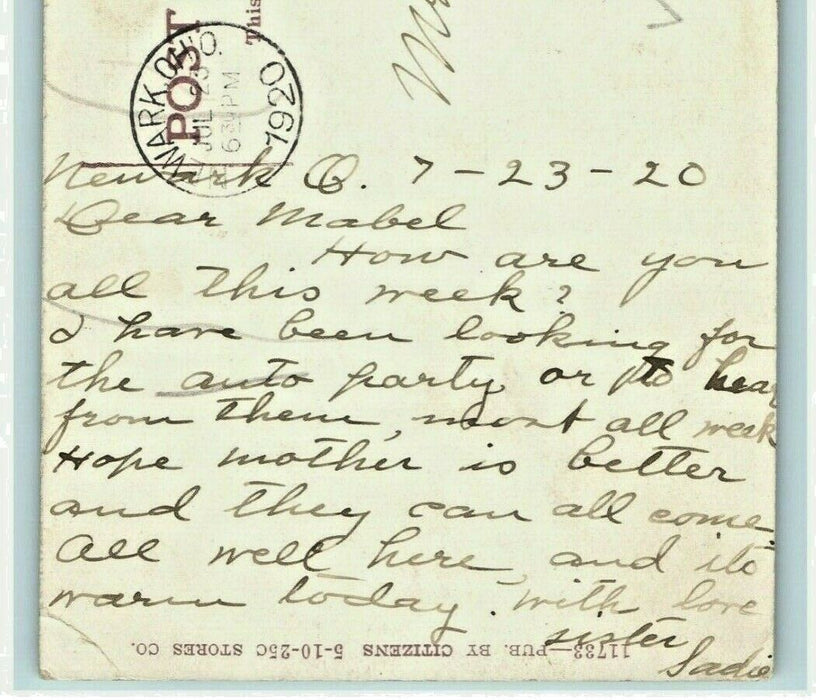 POST
This
NEWARK, OHIO.
JUL 23
630 PM
1920
Newark O. 7-23-20
Dear Mabel
How are you
all this week?
I have been looking for
the auto party or to hear
from them, most all week
Hope mother is better
and they can all come.
All well here, and its
warm today. With love
sister
Sadie
11733—PUB. BY CITIZENS 5-10-25C STORES CO.